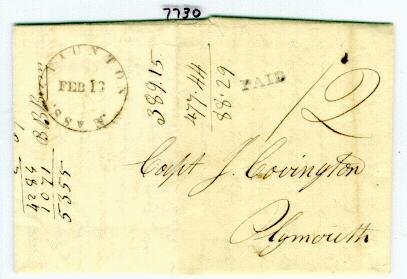 7730
TAUNTON
FEB 13
MASS
PAID
12
Capt J. Covington
Plymouth
389.15
477.44
88.29
4284
1071
5355